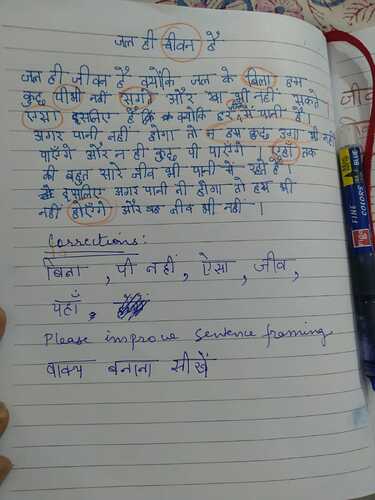 जल ही जीवन है
जल ही जीवन है क्योंकि जल के बिना हम
कुछ पीभी नहीं सगते और खा भी नहीं सकते।
एसा इसलिए है कि क्योंकि हर में पानी है।
अगर पानी नहीं होगा तो न हम कुछ उगा भी नहीं
पाएँगे और न ही कुछ पी पाएँगे। यहाँ तक
की बहुत सारे जीव भी पानी में रहते हैं।
इसलिए अगर पानी नी होगा तो हम भी
नहीं होएँगे और जीव भी नहीं।
Corrections:
बिना, पी नहीं, ऐसा, जीव,
यहाँ,
Please improve sentence framing
वाक्य बनाना सीखें
FINE
COLORS